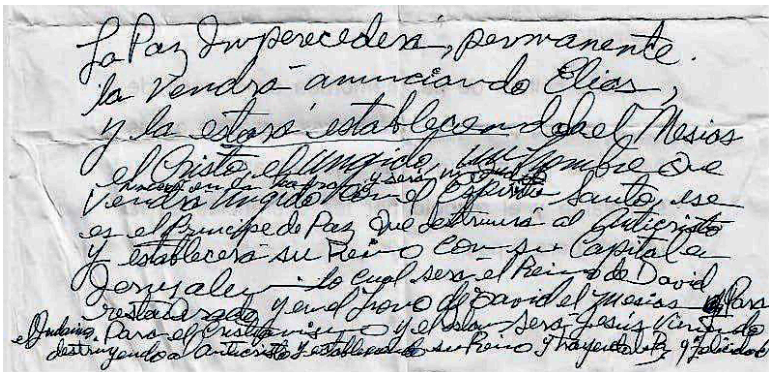 La Paz Imperecedera, permanente.
la vendrá anunciando Elias,
y la estará estableciendola el Mesias
el Cristo, el Ungido, un hombre que
nacerá en la tierra y será ungido
Vendrá Ungido con el Espiritu Santo, ese
es el Principe de Paz que destruirá al anticristo
y establecerá su Reino con su Capital en
Jerusalem lo cual será el Reino de David
restaurado y en el trono de David el Mesias Para
el Judaismo. Para el Cristianismo y el Islam será Jesús Viniendo
destruyendo a anticristo y estableciendo su Reino y trayendo la Paz y felicidad